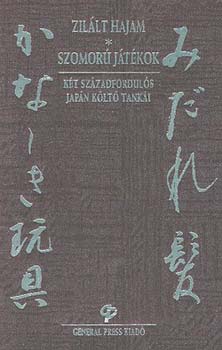 ZILÁLT HAJAM
*
SZOMORÚ JÁTÉKOK
KÉT SZÁZADFORDULÓS
JAPÁN KÖLTŐ TANKÁI
みだれ髪
かなしき玩具
GENERAL PRESS KIADÓ